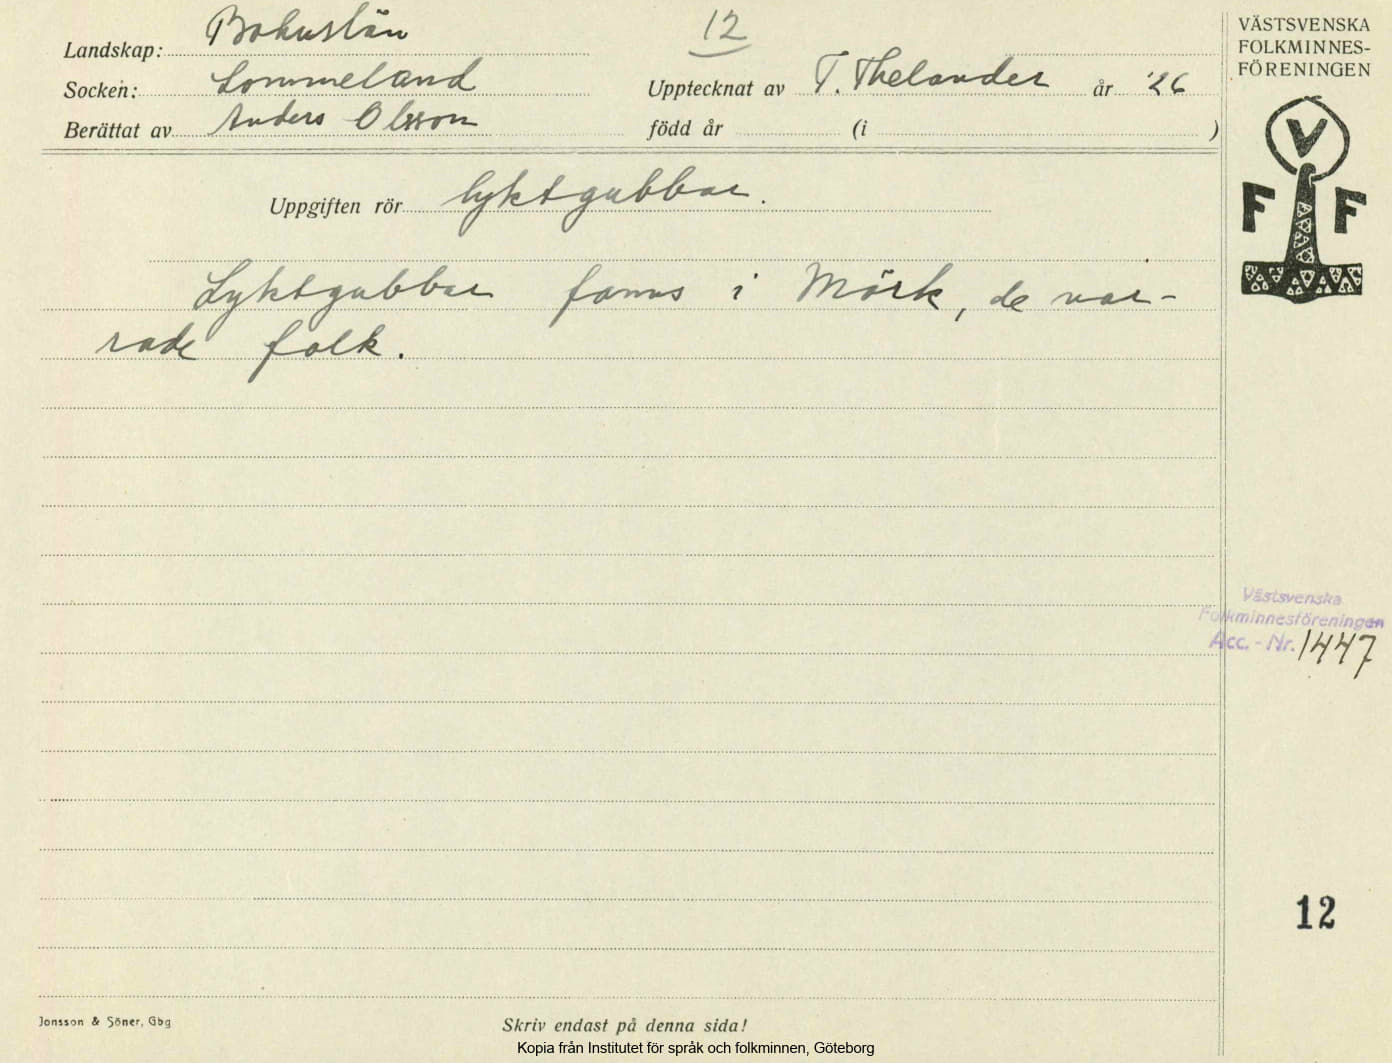 Landskap: Bohuslän
12
Socken: Lommeland
Upptecknat av T. Thelander år '26
Berättat av Anders Olsson
född år (i )
Uppgiften rör lyktgubbar.
Lyktgubbar fanns i Mörk, de var-
rade folk.
VÄSTSVENSKA
FOLKMINNES-
FÖRENINGEN
V
F F
Västsvenska
Folkminnesföreningen
Acc. - Nr. 1447
12
Jonsson & Söner, Gbg
Skriv endast på denna sida!
Kopia från Institutet för språk och folkminnen, Göteborg